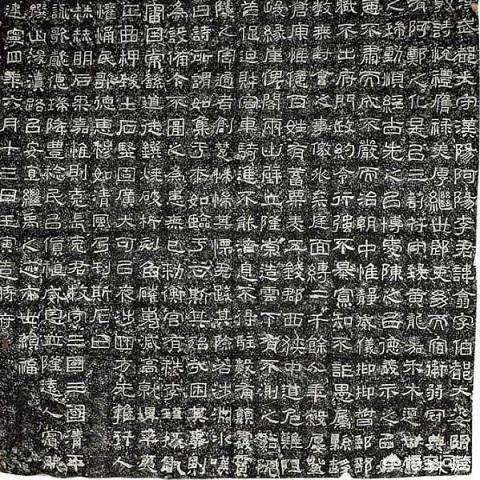 武都太守漢陽阿陽李君諱翕字伯都天姿明
敦詩悅禮膺祿美厚繼世郎吏幼而宿衛弱冠典
有阿鄭之化是以三剖符守致黃龍嘉禾木連甘
之瑞動順經古先之以博愛陳之以德義示之以
惡不肅而成不嚴而治朝中惟靜威儀抑抑督郵部
職不出府門政約令行強不暴寡知不詐愚屬縣趨
教無對會之事徼外來庭面縛二千餘人年穀屢登
倉庾惟億百姓有蓄粟麥五錢郡西狹中道危難阻
峻緣崖俾閣兩山壁立隆崇造雲下有不測之谿阨
笮促迫財容車騎進不能濟息不得駐數有顛覆霣
隧之害過者創楚惴惴其慄君踐其險若涉淵冰歎
曰詩所謂如集于木如臨于谷斯其殆哉困其事則
為設備今不圖之為患無已敕衡官有秩李瑾掾仇
審因常繇道徒鐉燒破析刻臽確嵬減高就埤平夷
正曲柙致土石堅固廣大可以夜涉四方无雍行人
懽悀民歌德惠穆如清風乃刊斯石曰
赫赫明后柔嘉惟則克長克君牧守三國三國清平
詠歌懿德瑞降豐稔民以貨稙威恩並隆遠人賓服
鐉山浚瀆路以安直繼禹之迹亦世賴福
建寧四年六月十三日壬寅造時府
悟空问答